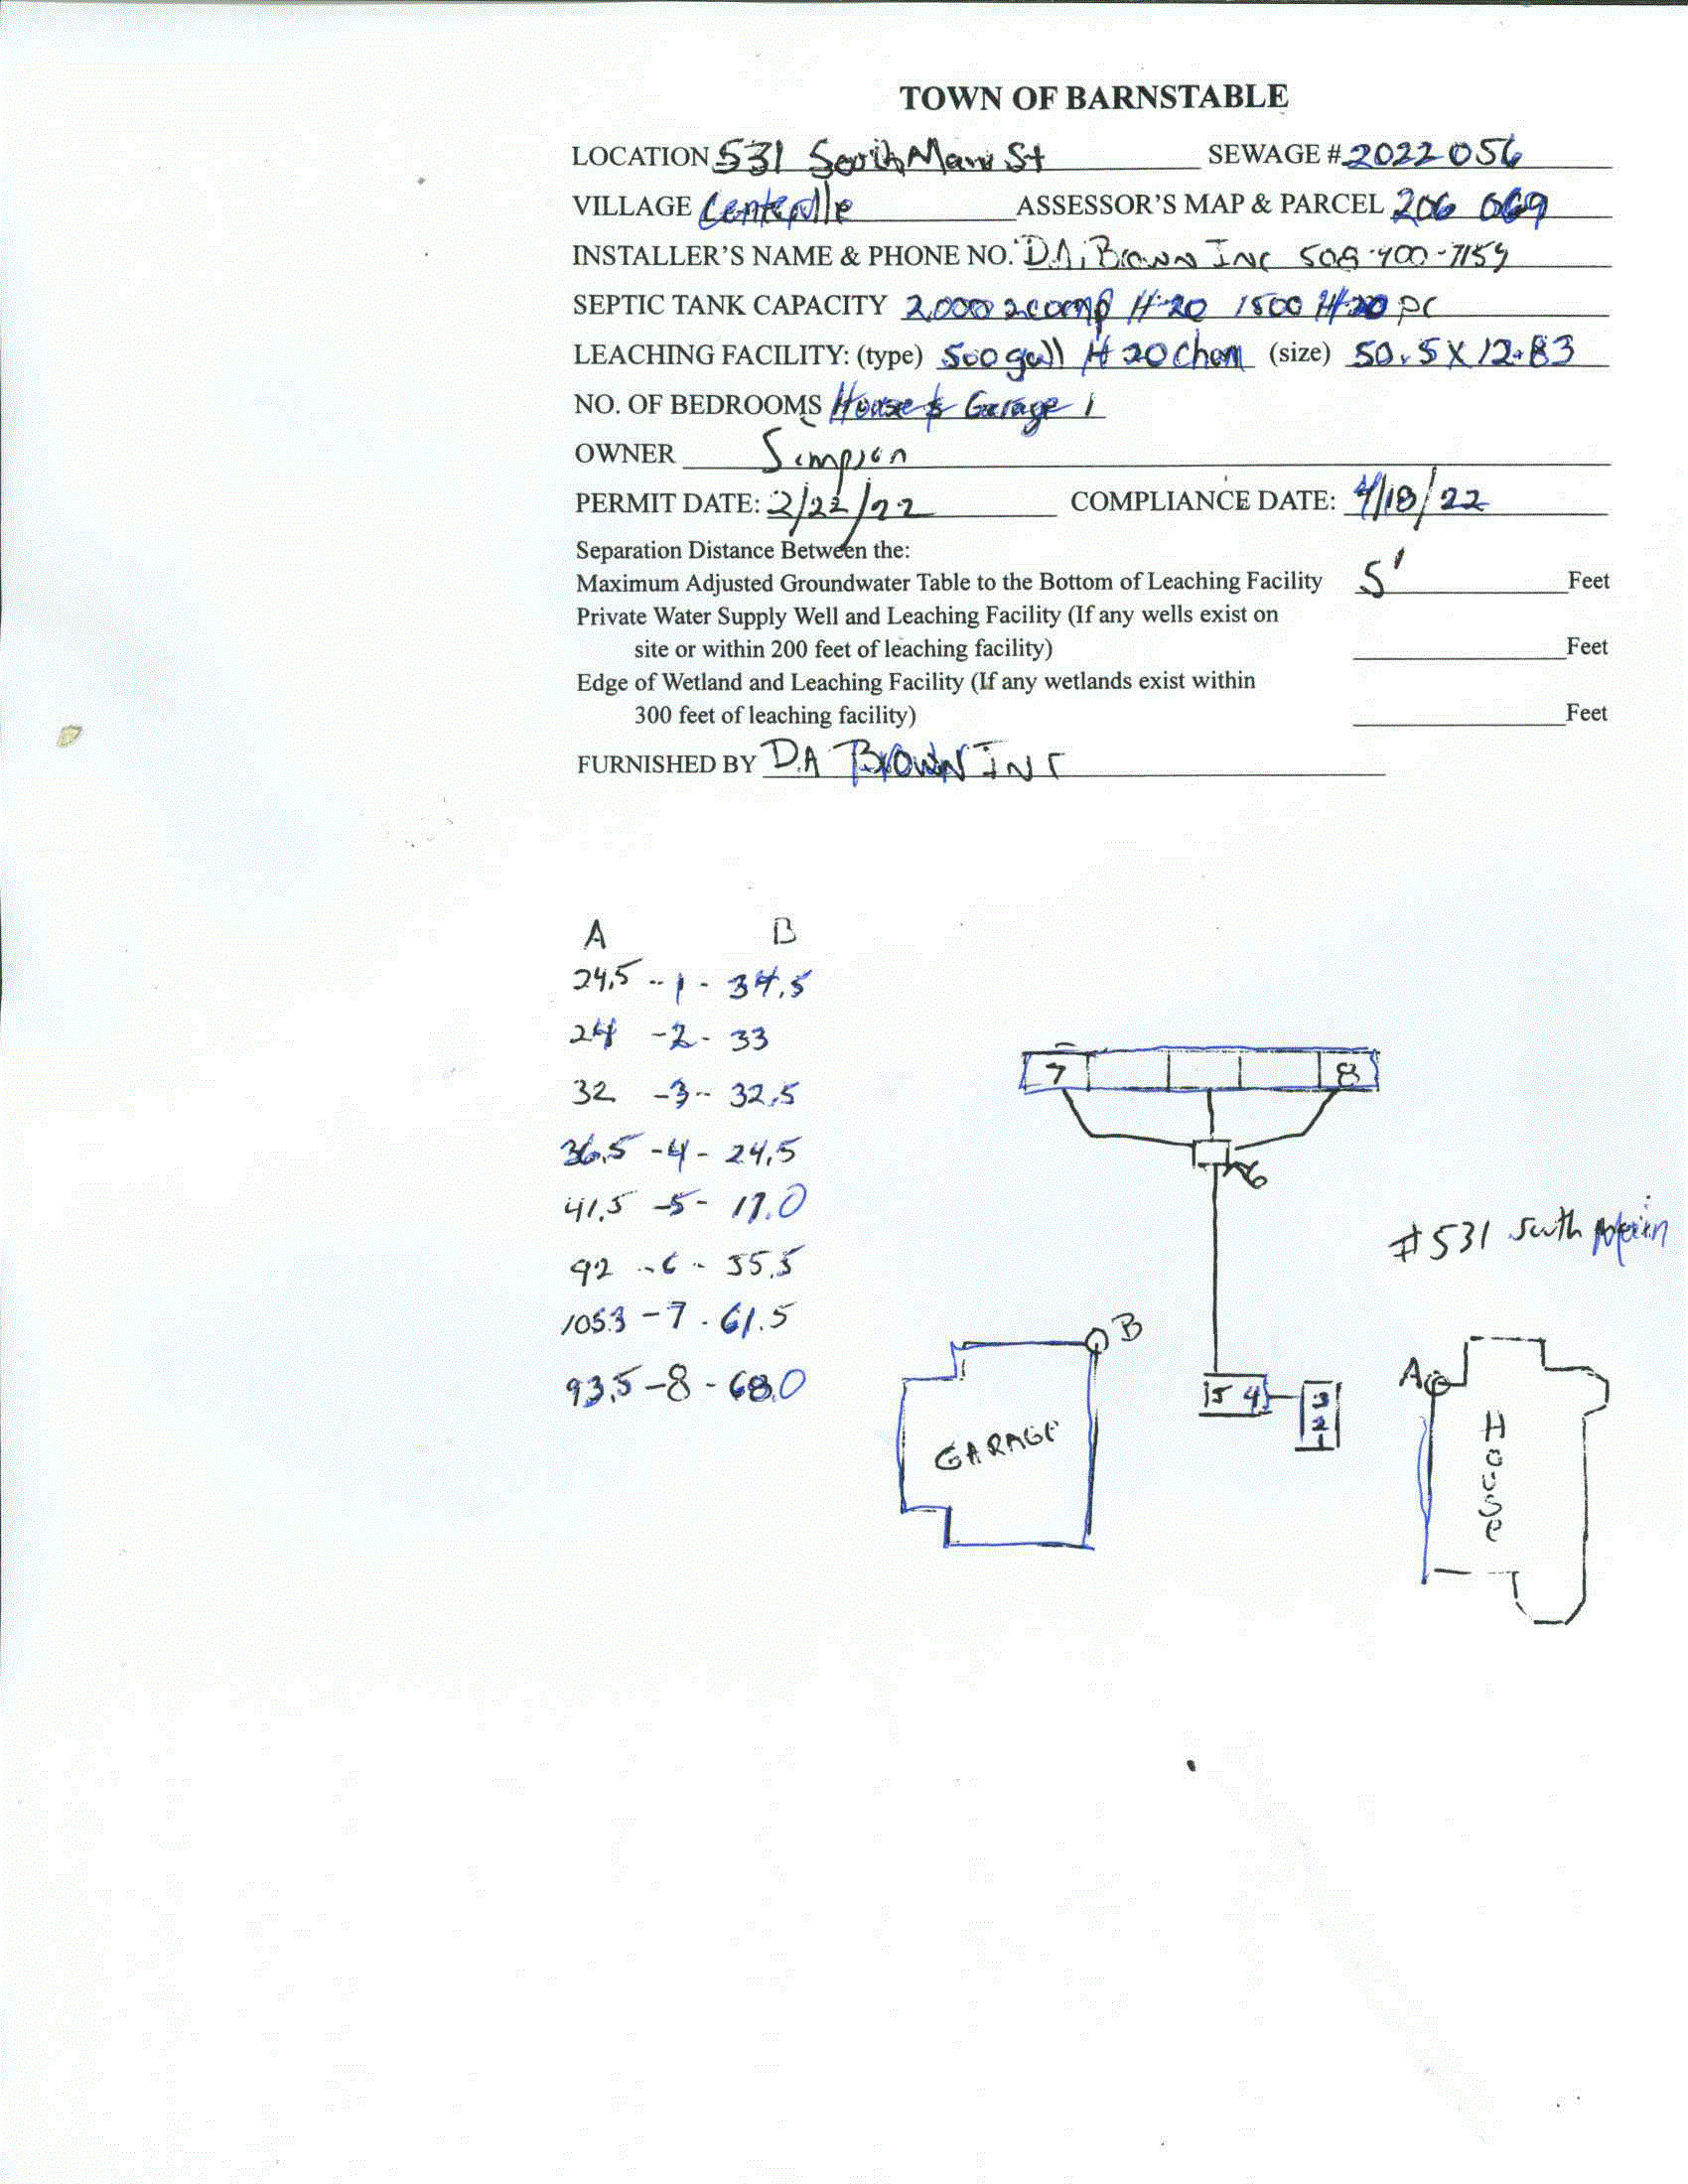 TOWN OF BARNSTABLE
LOCATION 531 South Main St SEWAGE # 2022 056
VILLAGE Centerville ASSESSOR'S MAP & PARCEL 206 069
INSTALLER'S NAME & PHONE NO. D.A. Brown Inc 508-400-7159
SEPTIC TANK CAPACITY 2,000 2 comp H-20 1500 H-20 PC
LEACHING FACILITY: (type) 500 gall H 20 Cham (size) 50.5 X 12.83
NO. OF BEDROOMS House Garage 1
OWNER Simpson
PERMIT DATE: 2/22/22 COMPLIANCE DATE: 4/18/22
Separation Distance Between the:
Maximum Adjusted Groundwater Table to the Bottom of Leaching Facility 5' Feet
Private Water Supply Well and Leaching Facility (If any wells exist on
site or within 200 feet of leaching facility) Feet
Edge of Wetland and Leaching Facility (If any wetlands exist within
300 feet of leaching facility) Feet
FURNISHED BY D.A Brown Inc
A B
24.5 - 1 - 34.5
24 - 2 - 33
32 - 3 - 32.5
36.5 - 4 - 24.5
41.5 - 5 - 17.0
92 - 6 - 55.5
105.3 - 7 - 61.5
93.5 - 8 - 68.0
7 8
6
#531 South Main
B
A
5 4
3
2
1
GARAGE
House